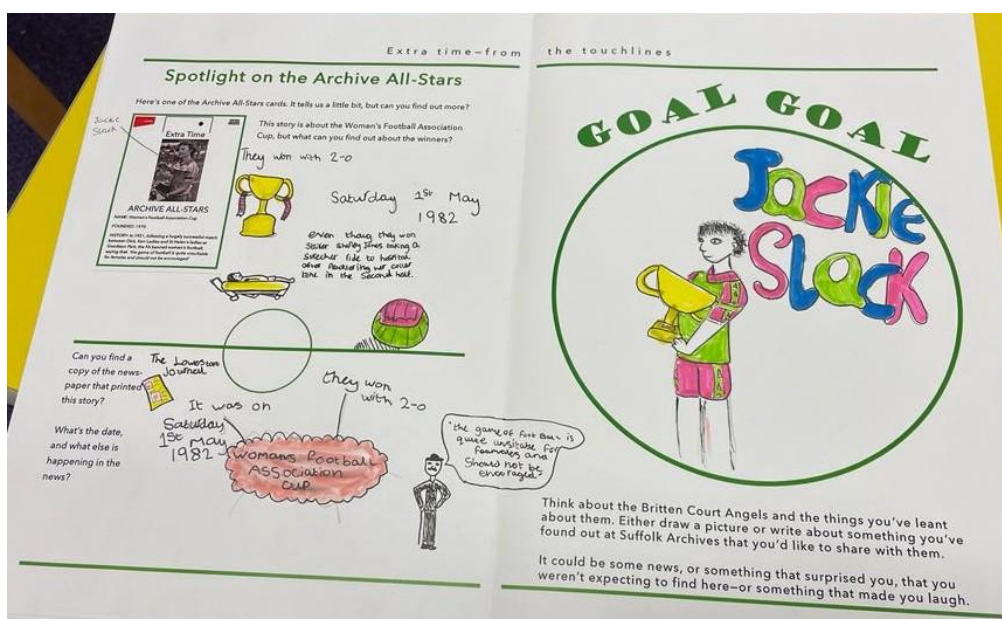 Extra time—from the touchlines
Spotlight on the Archive All-Stars
Here's one of the Archive All-Stars cards. It tells us a little bit, but can you find out more?
Jackie
Slack
Extra Time
ARCHIVE ALL-STARS
NAME: Women's Football Association Cup
FOUNDED: 1970
HISTORY: In 1921, following a hugely successful match
between Dick, Kerr Ladies and St Helen's ladies at
Goodison Park, the FA banned women's football,
saying that 'the game of football is quite unsuitable
for females and should not be encouraged'
This story is about the Woman's Football Association
Cup, but what can you find out about the winners?
They won with 2-0
Saturday 1st May
1982
even they won
taking a
ride to
after her
in the second half.
Can you find a
copy of the news-
paper that printed
this story?
What's the date,
and what else is
happening in the
news?
The
Journal
It was on
Saturday
1st May
1982
they won
with 2-0
womans football
ASSociation
CUP
"the game of foot Ball is
quite for
and
Should not be
GOAL GOAL
JACKIE
SLACK
Think about the Britten Court Angels and the things you've leant
about them. Either draw a picture or write about something you've
found out at Suffolk Archives that you'd like to share with them.
It could be some news, or something that surprised you, that you
weren't expecting to find here—or something that made you laugh.